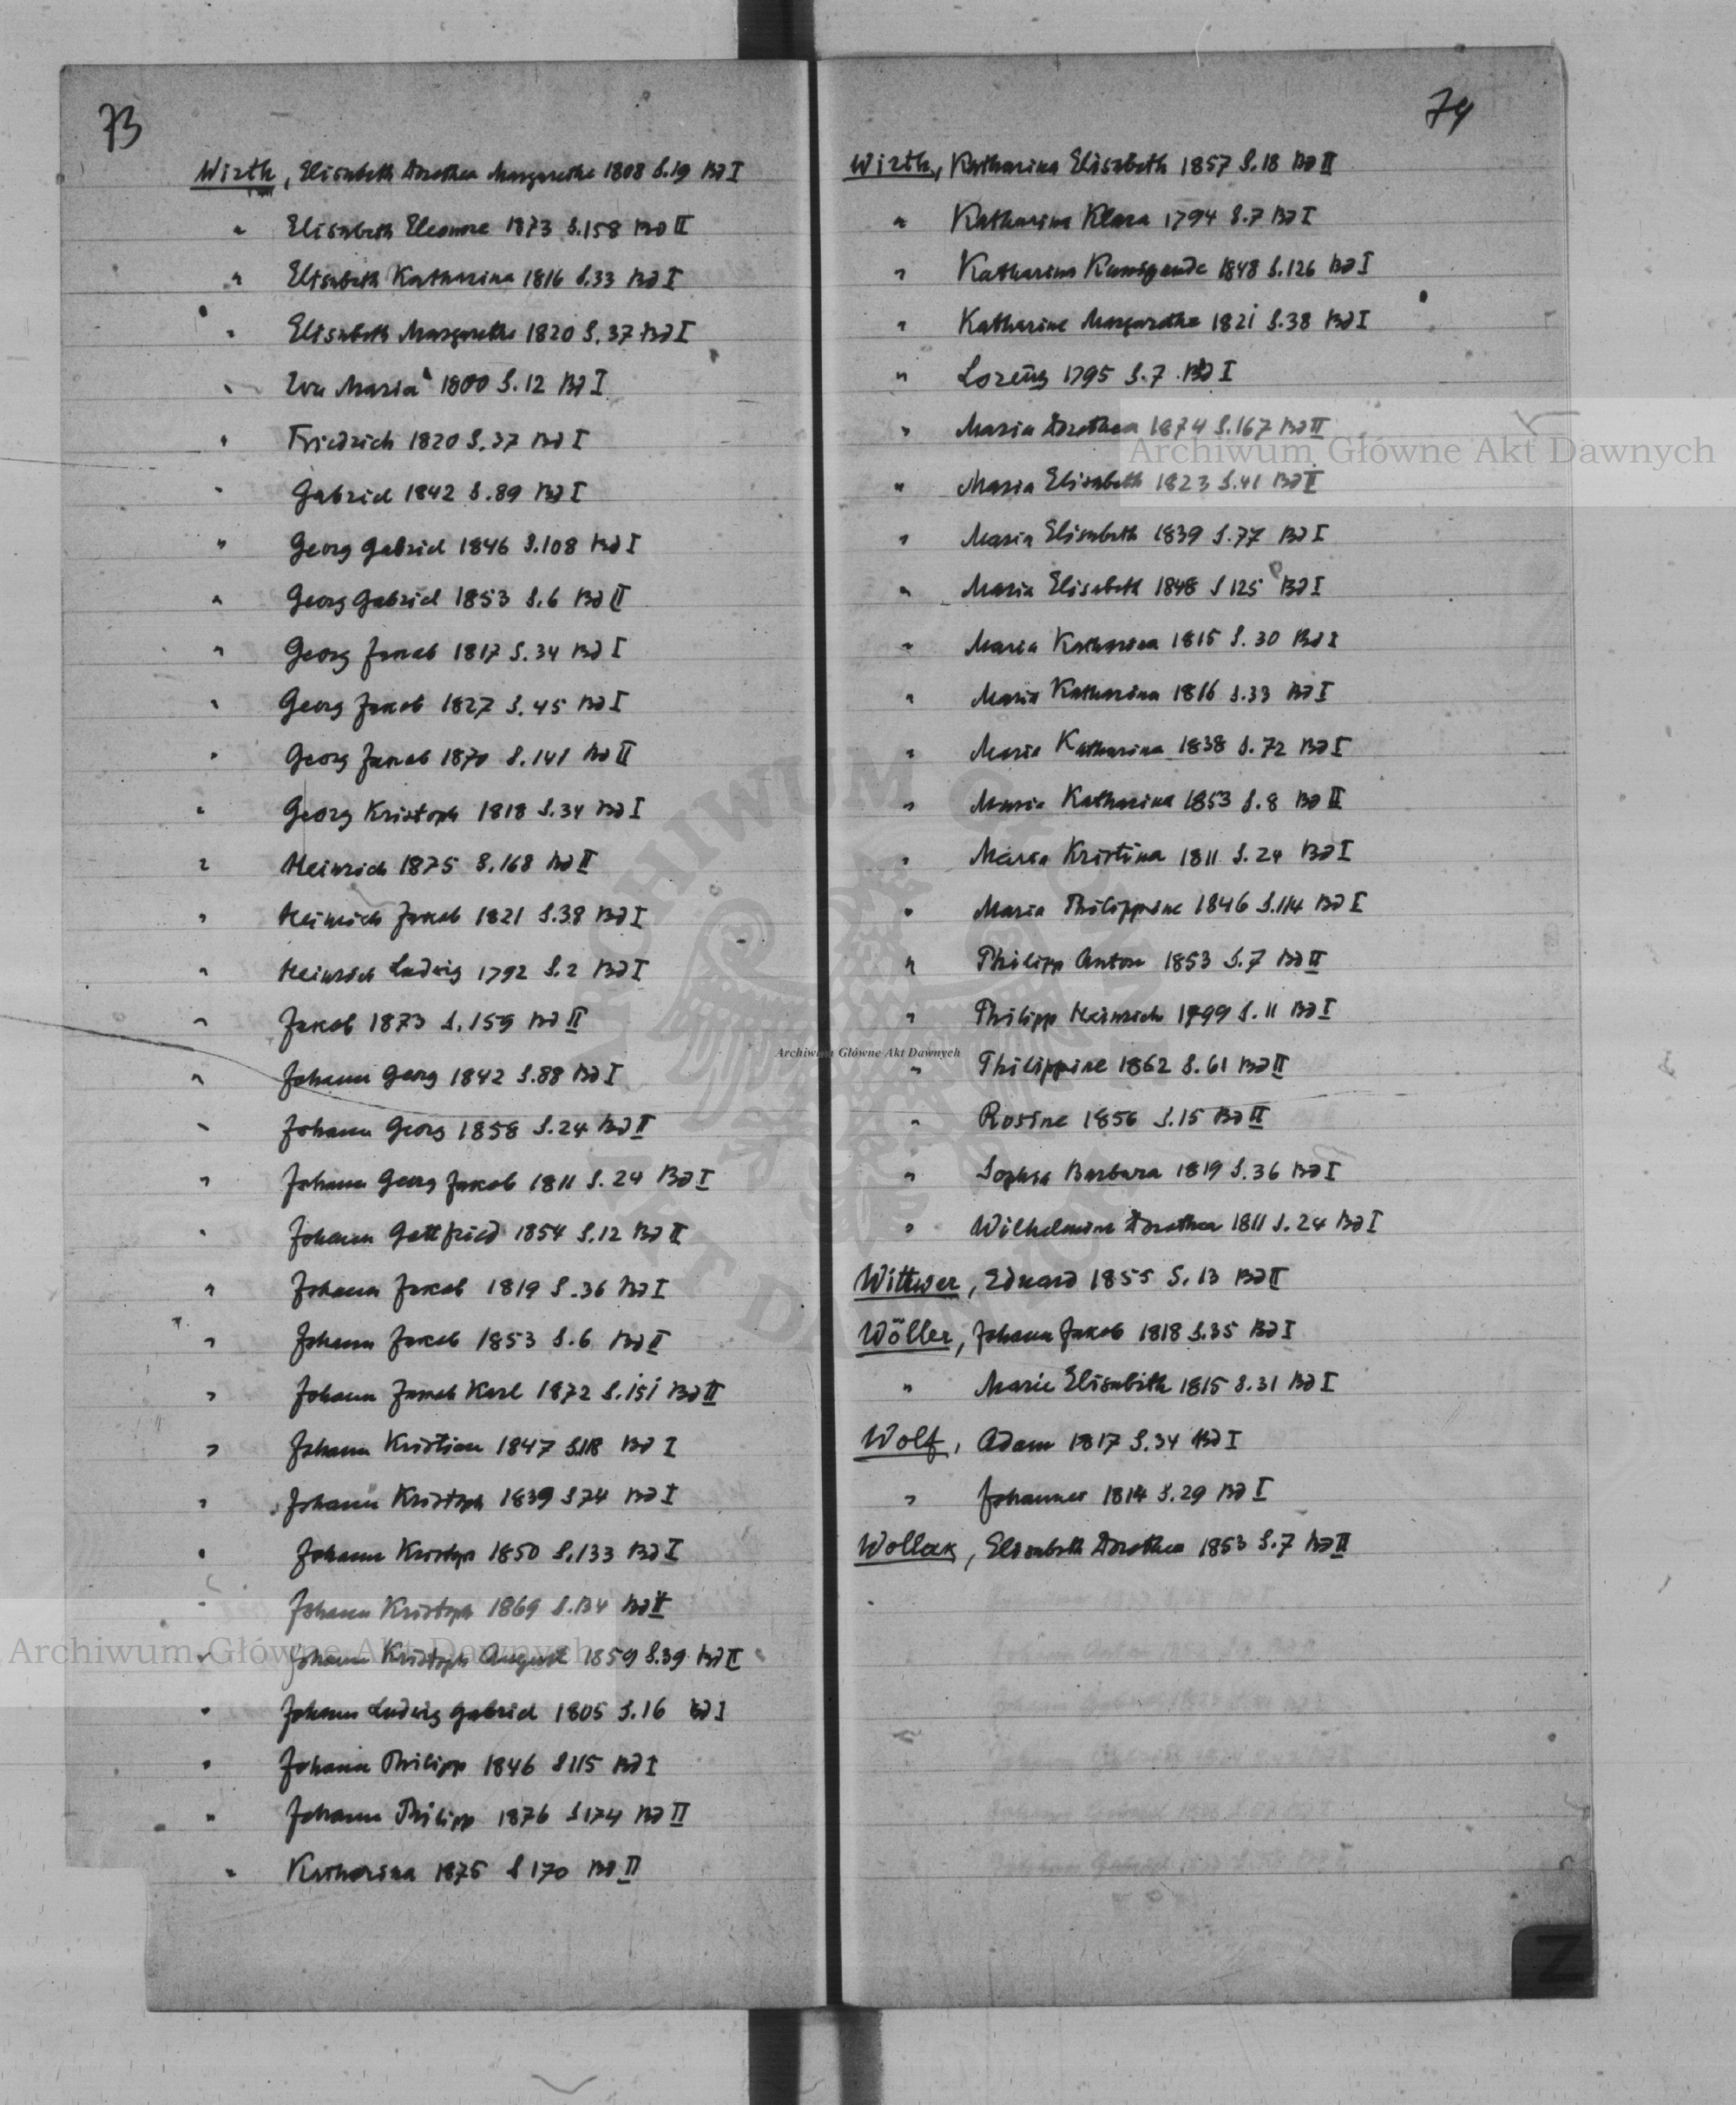 73
Wirth, Elisabeth Dorothea Margarethe 1808 S.19 Bd I
" Elisabeth Eleonore 1873 S.158 Bd II
" Elisabeth Katharina 1816 S.33 Bd I
" Elisabeth Margarethe 1820 S.37 Bd I
" Eva Maria 1800 S.12 Bd I
" Friedrich 1820 S.37 Bd I
" Gabriel 1842 S.89 Bd I
" Georg Gabriel 1846 S.108 Bd I
" Georg Gabriel 1853 S.6 Bd II
" Georg Jakob 1817 S.34 Bd I
" Georg Jakob 1827 S.45 Bd I
" Georg Jakob 1870 S.141 Bd II
" Georg Kristoph 1818 S.34 Bd I
" Heinrich 1875 S.168 Bd II
" Heinrich Jakob 1821 S.38 Bd I
" Heinrich Ludwig 1792 S.2 Bd I
" Jakob 1873 S.159 Bd II
" Johann Georg 1842 S.88 Bd I
" Johann Georg 1858 S.24 Bd II
" Johann Georg Jakob 1811 S.24 Bd I
" Johann Gottfried 1854 S.12 Bd II
" Johann Jakob 1819 S.36 Bd I
" Johann Jakob 1853 S.6 Bd II
" Johann Jakob Karl 1872 S.151 Bd II
" Johann Kristian 1847 S.118 Bd I
" Johann Kristoph 1839 S 74 Bd I
" Johann Kristoph 1850 S.133 Bd I
" Johann Kristoph 1869 S.134 Bd II
" Johann Kristoph August 1859 S.39 Bd II
" Johann Ludwig Gabriel 1805 S.16 Bd I
" Johann Philipp 1846 S 115 Bd I
" Johann Philipp 1876 S 174 Bd II
" Katharina 1875 S 170 Bd II
74
Wirth, Katharina Elisabeth 1857 S.18 Bd II
" Katharina Klara 1794 S.7 Bd I
" Katharina Kunigunde 1848 S.126 Bd I
" Katharine Margarethe 1821 S.38 Bd I
" Lorenz 1795 S.7 Bd I
" Maria Dorothea 1874 S.167 Bd II
" Maria Elisabeth 1823 S.41 Bd I
" Maria Elisabeth 1839 S.77 Bd I
" Maria Elisabeth 1848 S 125 Bd I
" Maria Katharina 1815 S.30 Bd I
" Maria Katharina 1816 S.33 Bd I
" Maria Katharina 1838 S.72 Bd I
" Maria Katharina 1853 S.8 Bd II
" Maria Kristina 1811 S.24 Bd I
" Maria Philippine 1846 S.114 Bd I
" Philipp Anton 1853 S.7 Bd II
" Philipp Heinrich 1799 S.11 Bd I
" Philippine 1862 S.61 Bd II
" Rosine 1856 S.15 Bd II
" Sophia Barbara 1819 S.36 Bd I
" Wilhelmine Dorothea 1811 S.24 Bd I
Wittwer, Eduard 1855 S.13 Bd II
Wöller, Johann Jakob 1818 S.35 Bd I
" Marie Elisabeth 1815 S.31 Bd I
Wolf, Adam 1817 S.34 Bd I
" Johannes 1814 S.29 Bd I
Wollak, Elisabeth Dorothea 1853 S.7 Bd II
Z
Archiwum Główne Akt Dawnych
Archiwum Główne Akt Dawnych
Archiwum Główne Akt Dawnych